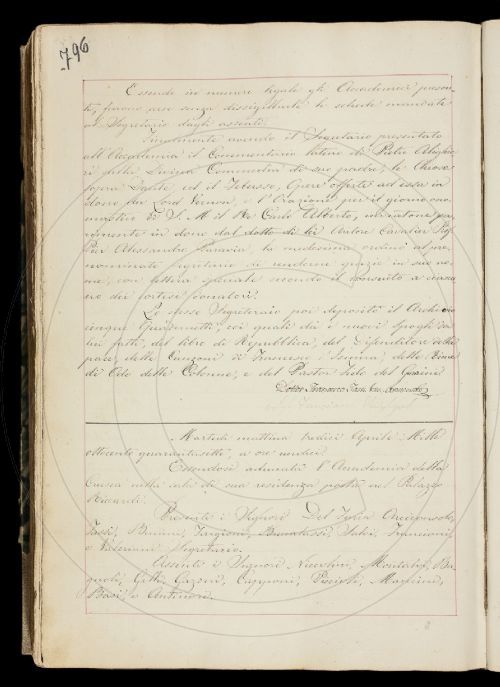 796
Essendo in numero legale gli Accademici presen-
ti, furono rese senza dissigillarle le schede mandate
al Segretario dagli assenti.
Finalmente avendo il Segretario presentato
all'Accademia il Commentario latino di Pietro Alighie-
ri sulla Divina Commedia di suo padre, le Chiose
sopra Dante, ed il Febusso, Opere offerte ad essa in
dono da Lord Vernon, e l'Orazione per il giorno ono-
mastico di S. M. il Re Carlo Alberto,
in dono dal dotto di lei Autore Cavalier Prof.
Pier Alessandro Paravia, la medesima ordinò al pre-
nominato Segretario di renderne grazie in suo no-
me, con lettera speciale secondo il consueto a ciascu-
no dei cortesi donatori.
Lo stesso Segretario poi depositò il Archivio
cinque Quadernetti, coi quali dei nuovi spogli da
lui fatti, del libro di Repubblica, del
pace, delle Canzoni di Francesco
di Odo delle Colonne, e del Pastor fido del Guarini
Martedì mattina tredici Aprile Mille
ottocento quarantasette, a ore undici.
Essendosi adunata l'Accademia della
Crusca nella sala di sua residenza posta nel Palazzo
Riccardi.
Presenti i Signori Del Furia Arciconsolo,
Tassi, Targioni,
e Valeriani Segretario.
Assenti i Signori Niccolini, Montalvi, Ba-
gnoli, Gazzeri, Capponi, Puccioti, Manzini,
Basi, e Antinori.